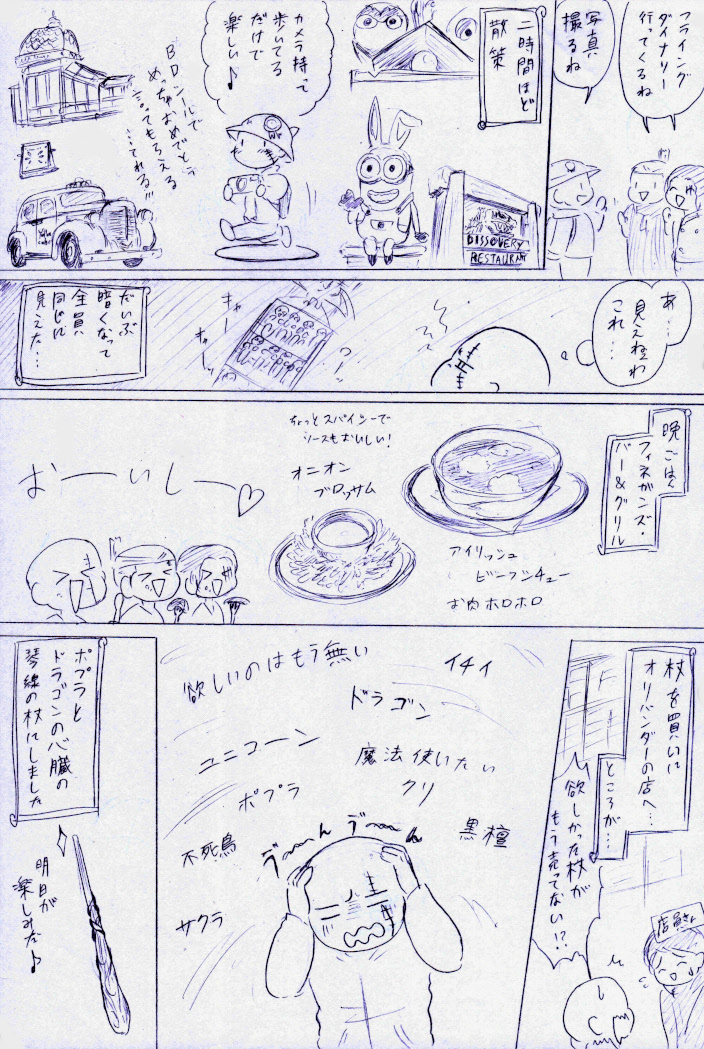 フライング
ダイナソー
行ってくるね
写真
撮るね
二時間ほど
散策
DISSOVERY
RESTAURANT
カメラ持って
歩いてる
だけで
楽しい♪
BDシールで
めっちゃおめでとう
言ってもらえる
…てれる!!!
あ…
見えねわ
これ…
キャー
キャーッ
だいぶ
暗くなって
全員
同じに
見えた…
晩ごはん
フィネガンズ・
バー&グリル
アイリッシュ
ビーフシチュー
お肉ホロホロ
ちょっとスパイシーで
ソースもおいしい!
オニオン
ブロッサム
おーいしー♡
杖を買いに
オリバンダーの店へ…
ところが…
欲しかった杖が
もう売ってない!?
店員さん
欲しいのはもう無い
イチイ
ドラゴン
ユニコーン
魔法使いたい
ポプラ
クリ
不死鳥
う〜ん う〜ん
黒檀
サクラ
ポプラと
ドラゴンの心臓の
琴線の杖にしました
明日が
楽しみだ♪